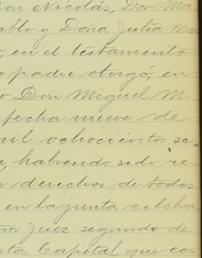 on Nicolás, Don Ma
ablo y Doña Julia Ma
, en el testamento
o padre otorgó, en
o Don Miguel M
fecha nueve de
mil ochocientos se
e, habiendo sido re
s derechos de todos
en la junta celeba
ñor Juez segundo de
sta Capital que cos